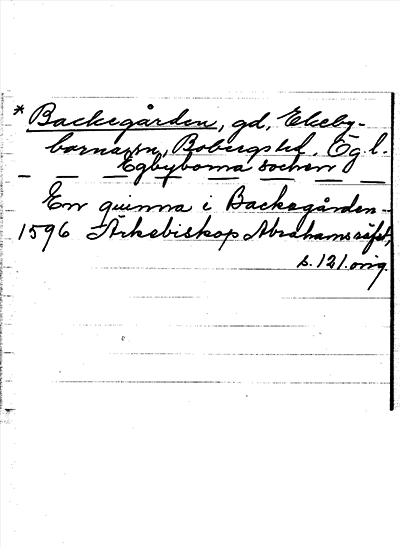 * Backegården, gd, Ekeby-
bornas sn, Bobergs hd. Ög l.
Egbyborna sochen
En quinna i Backegården
1596 Ärkebiskop Abrahams räfst,
s. 121. orig.